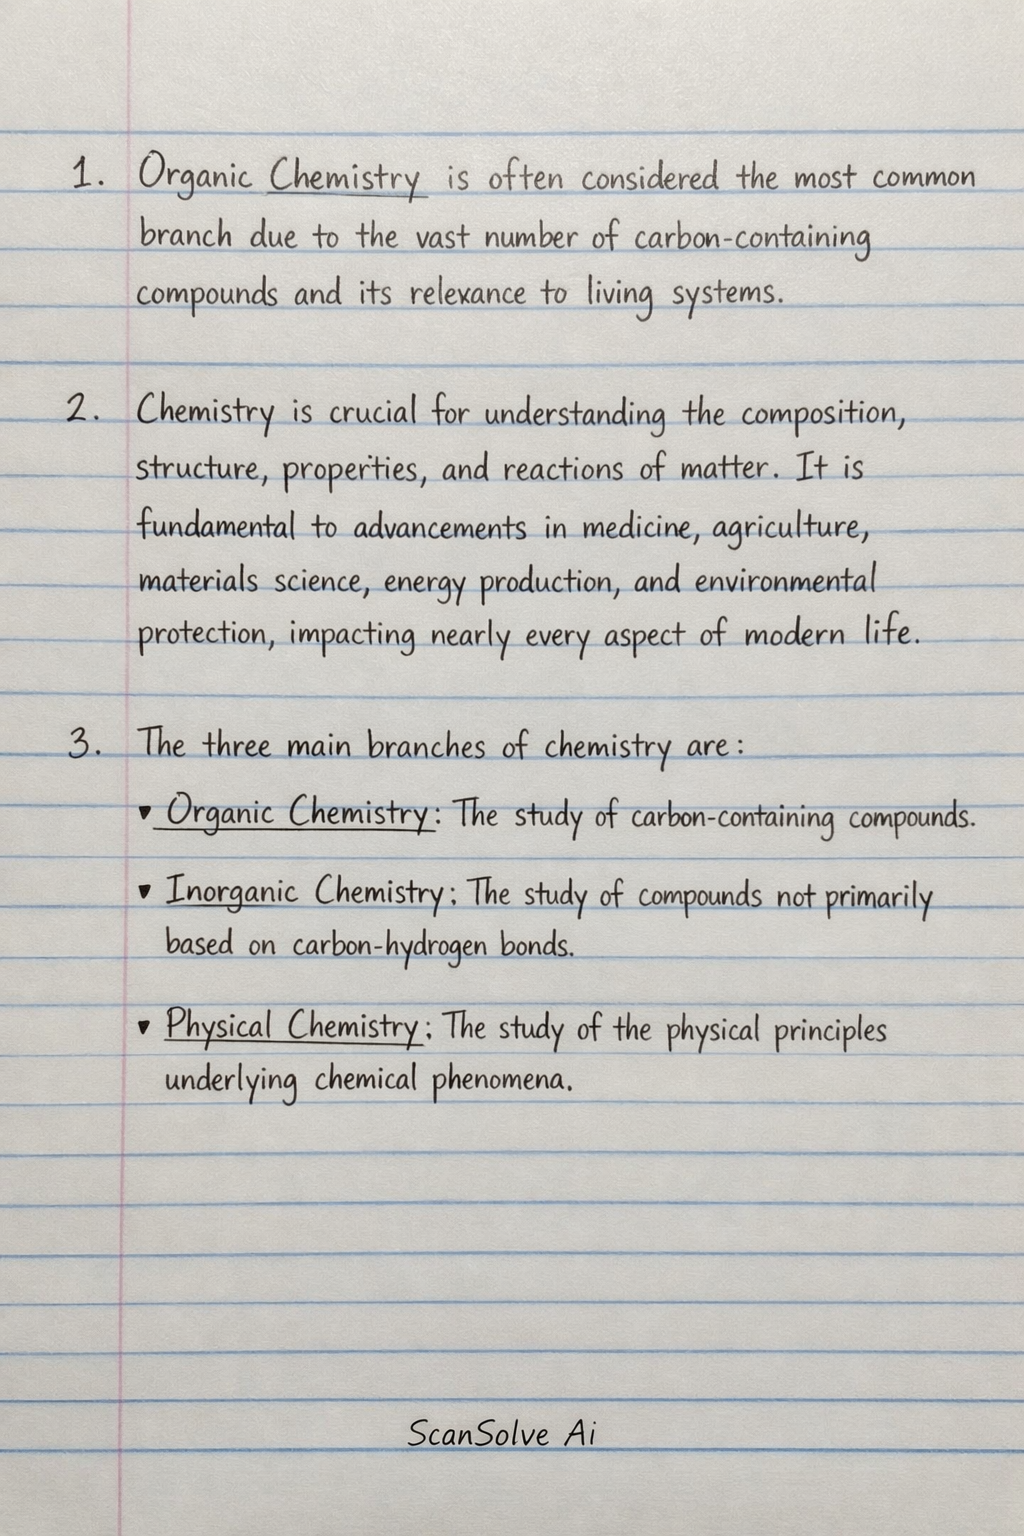 1. Organic Chemistry is often considered the most common
branch due to the vast number of carbon-containing
compounds and its relexance to living systems.
2. Chemistry is crucial for understanding the composition,
structure, properties, and reactions of matter. It is
fundamental to advancements in medicine, agriculture,
materials science, energy production, and environmental
protection, impacting nearly every aspect of modern life.
3. The three main branches of chemistry are:
▾ Organic Chemistry: The study of carbon-containing compounds.
▾ Inorganic Chemistry: The study of compounds not primarily
based on carbon-hydrogen bonds.
▾ Physical Chemistry: The study of the physical principles
underlying chemical phenomena.
ScanSolve Ai